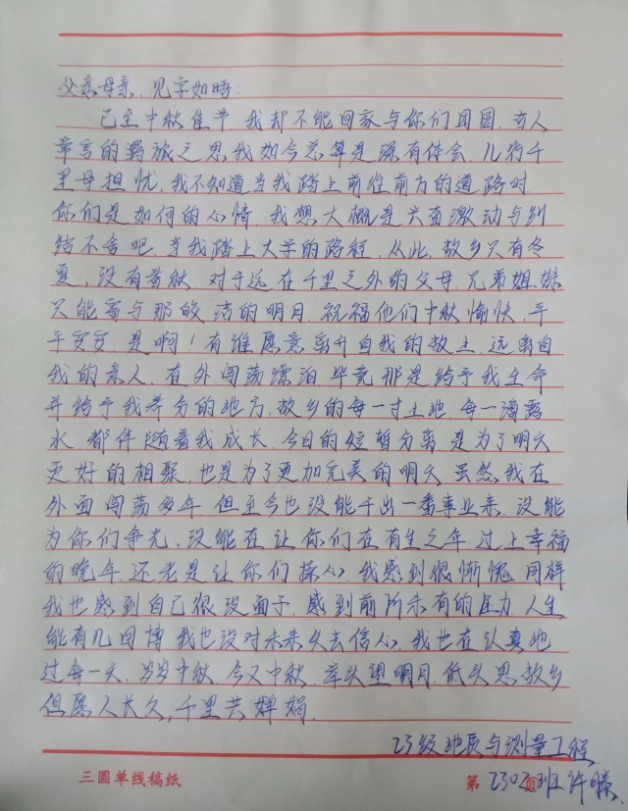 父亲母亲，见字如晤：
已至中秋佳节，我却不能回家与你们团圆，古人
常言的羁旅之思我如今总算是深有体会，儿行千
里母担忧，我不知道当我踏上前往前方的道路时
你们是如何的心情，我想大概是兴奋激动与别
结不舍吧，当我踏上大学的路程，从此，故乡只有冬
夏，没有春秋，对于远在千里之外的父母，兄弟姐妹
只能寄与那皎洁的明月，祝福他们中秋愉快，平
平安安，是啊！有谁愿意离开自我的故土，远离自
我的亲人，在外闯荡漂泊，毕竟那是给予我生命
并给予我养分的地方，故乡的每一寸土地，每一滴露
水，都伴随着我成长，今日的短暂分离，是为了明天
更好的相聚，也是为了更加完美的明天，虽然我在
外面闯荡多年，但至今也没能干出一番事业来，没能
为你们争光，没能在让你们在有生之年过上幸福
的晚年，还老是让你们操心，我感到很惭愧，同样
我也感到自己很没面子，感到前所未有的压力，人生
能有几回搏，我也没对未来失去信心，我也在认真地
过每一天，岁岁中秋，今又中秋，举头望明月，低头思故乡
但愿人长久，千里共婵娟。
23级地质与测量工程
三圆单线稿纸 第 2302班 许